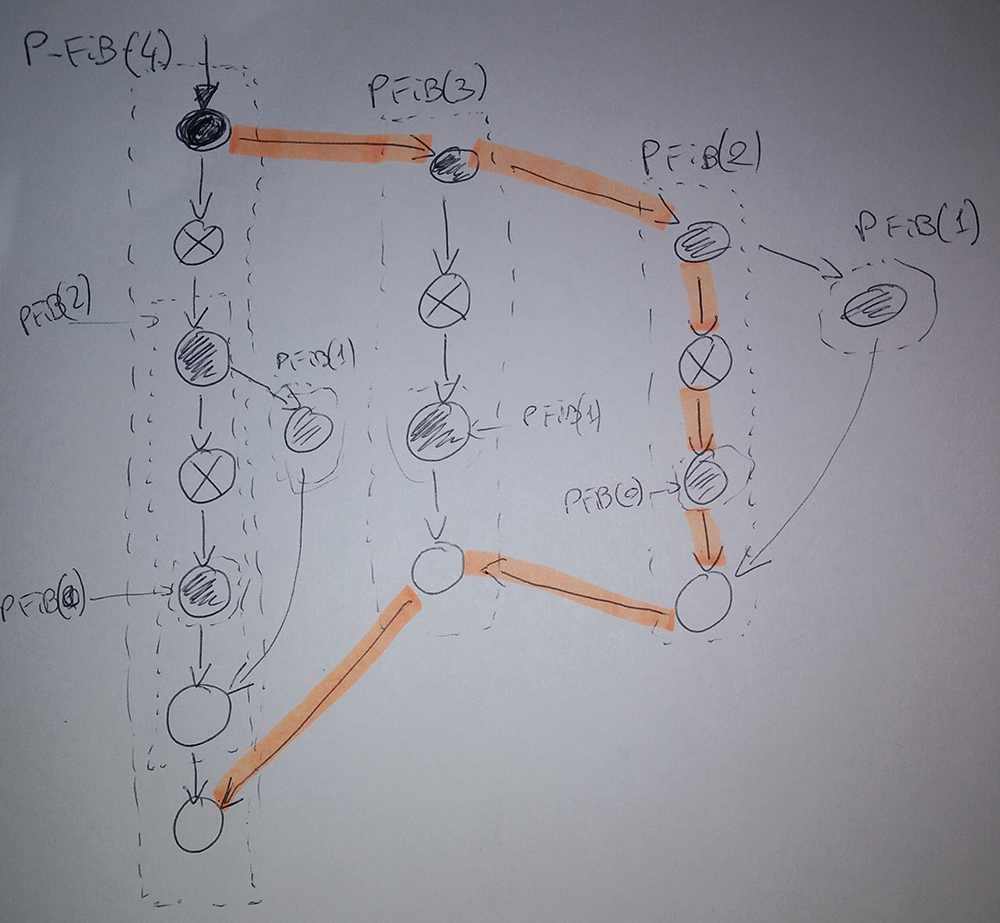 P-FiB(4)
PFiB(3)
PFiB(2)
PFiB(1)
PFiB(2)
PFiB(1)
PFiB(1)
PFiB(0)